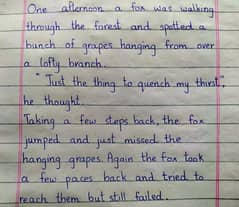 One afternoon a fox was walking
through the forest and spotted a
bunch of grapes hanging from over
a lofty branch.
"Just the thing to quench my thirst",
he thought.
Taking a few steps back, the fox
jumped and just missed the
hanging grapes. Again the fox took
a few paces back and tried to
reach them but still failed.